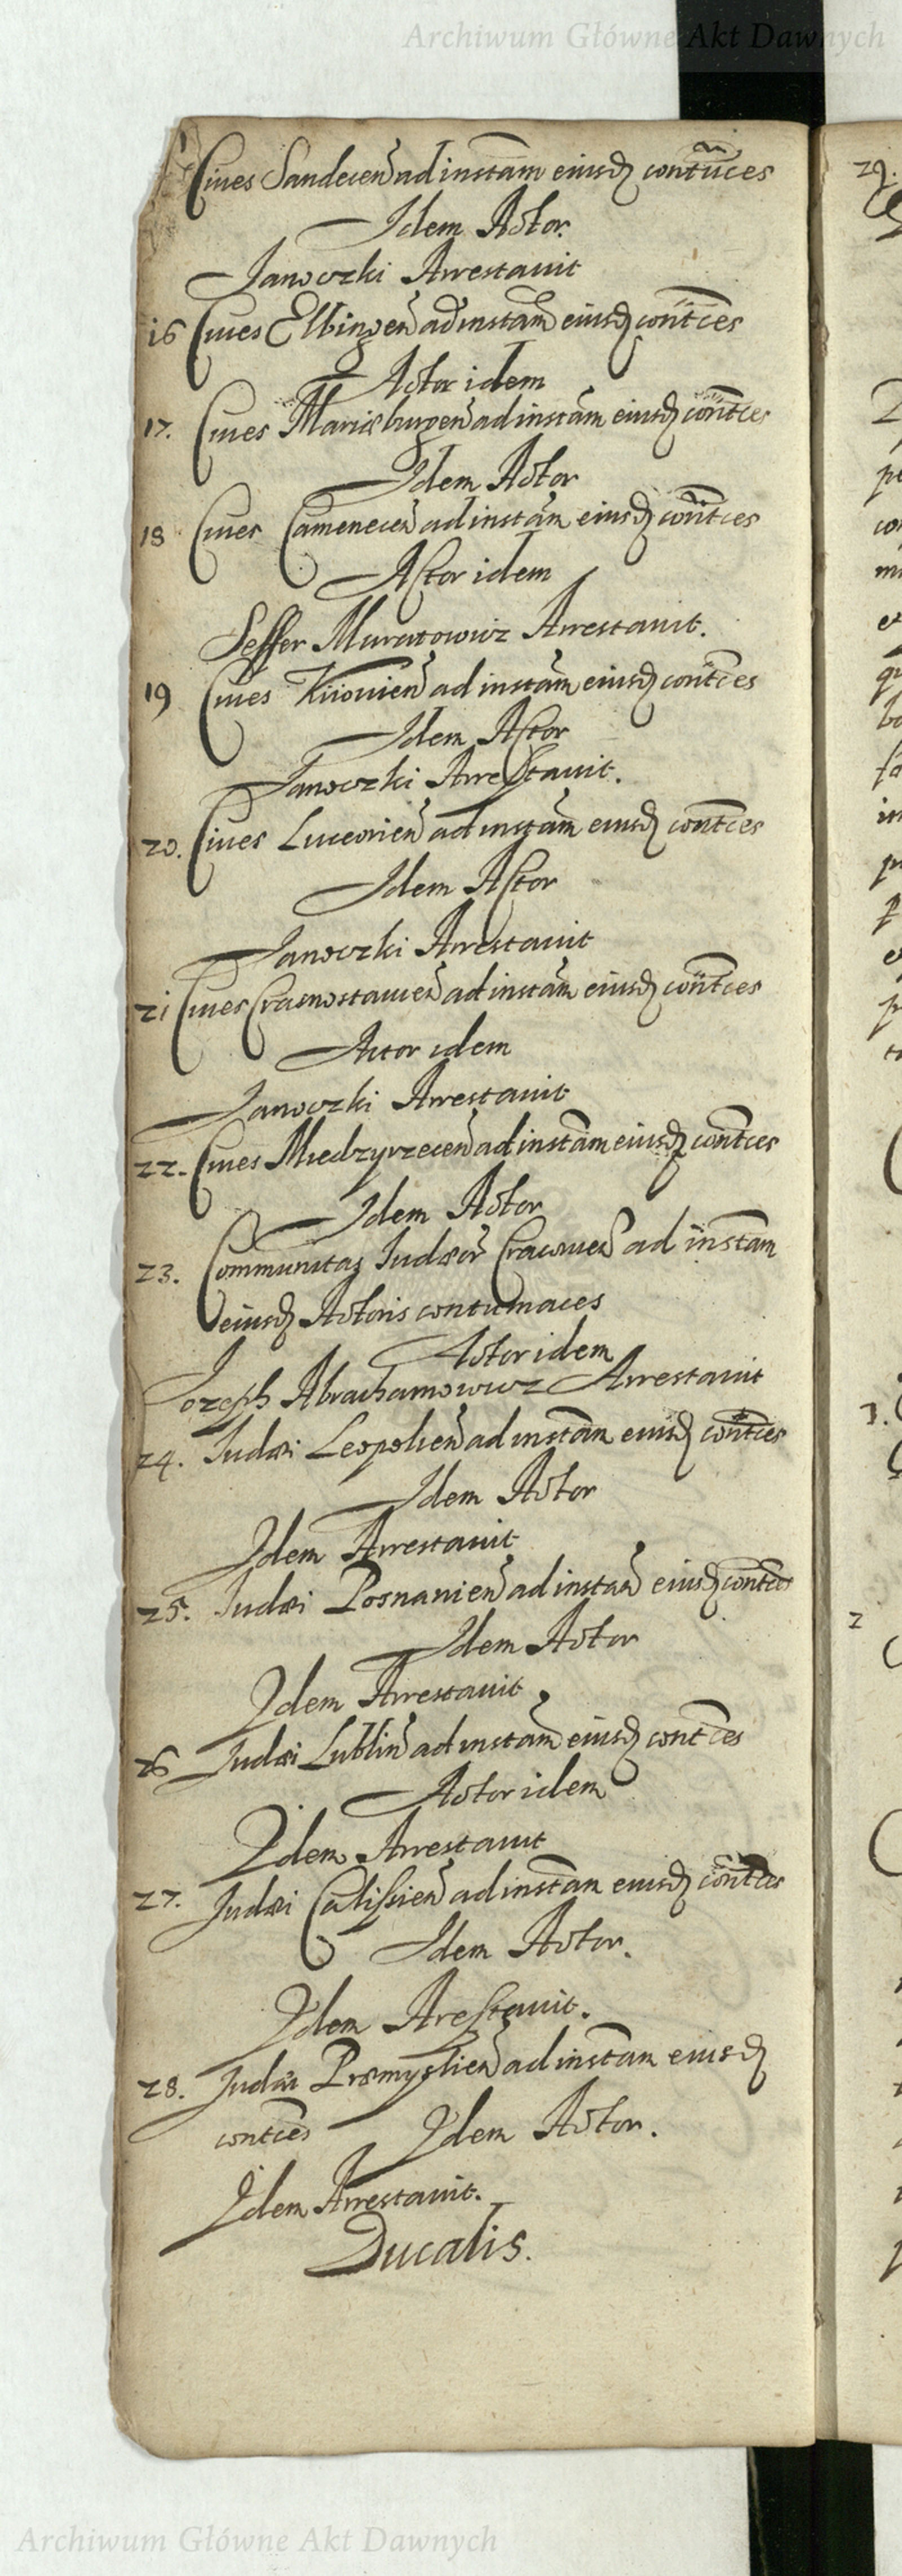 Archiwum Główne Akt Dawnych
Ciues Sandecen ad instam eiusd contuces
Idem Actor.
Janoczki Arrestauit
16 Ciues Elbingen ad instam eiusd contces
Actor idem
17. Ciues Mariæburgen ad instam eiusd contces
Idem Actor
18 Ciues Camenecen ad instam eiusd contces
Actor idem
Seffer Muratowicz Arrestauit.
19 Ciues Kiiouien ad instam eiusd contces
Idem Actor
Janoczki Arrestauit.
20. Ciues Luceorien ad instam eiusd contces
Idem Actor
Janoczki Arrestauit
21 Ciues Crasnostauien ad instam eiusd contces
Actor idem
Janoczki Arrestauit
22. Ciues Miedzyrzecen ad instam eiusd contces
Idem Actor
23. Communitas Iudæor Cracouien ad instam
eiusd Actoris contumaces
Actor idem
Jozeph Abrahamowicz Arrestauit
24. Iudæi Leopolien ad instam eiusd contces
Idem Actor
Idem Arrestauit
25. Iudæi Posnanien ad instam eiusd contces
Idem Actor
Idem Arrestauit
26 Iudæi Lublin ad instam eiusd contces
Actor idem
Idem Arrestauit
27. Iudæi Calissien ad instam eiusd contces
Idem Actor.
Idem Arestauit.
28. Iudæi Præmyslien ad instam eiusd
contces Idem Actor.
Idem Arrestauit.
Ducalis.
29.
Archiwum Główne Akt Dawnych